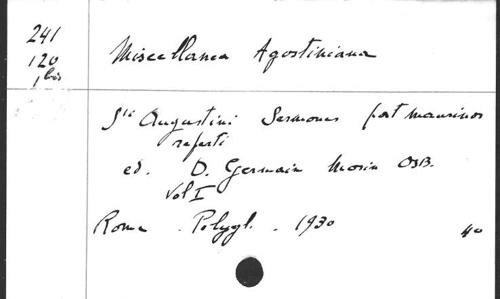 241
120
1 bis
Miscellanea Agostiniana
Sti Augustini Sermones post Maurinos
reperti
ed. D. Germain Morin OSB.
Vol I
Roma . Polygl. . 1930 40